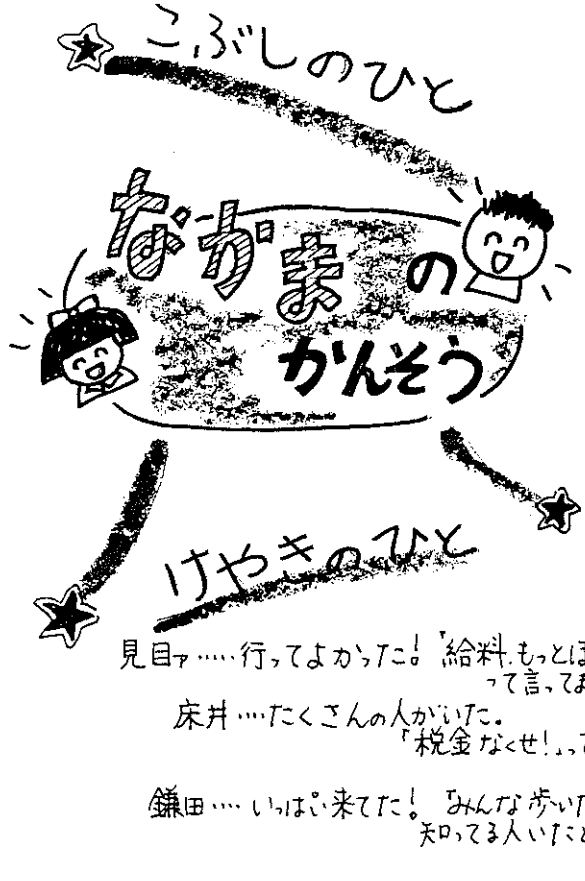 こぶしのひと
なかまの
かんそう
けやきのひと
見目ァ……行ってよかった!『給料、もっとほ
って言って
床井……たくさんの人がいた。
『税金なくせ!』って
鎌田……いっぱい来てた!『みんな歩いた
知ってる人いたと